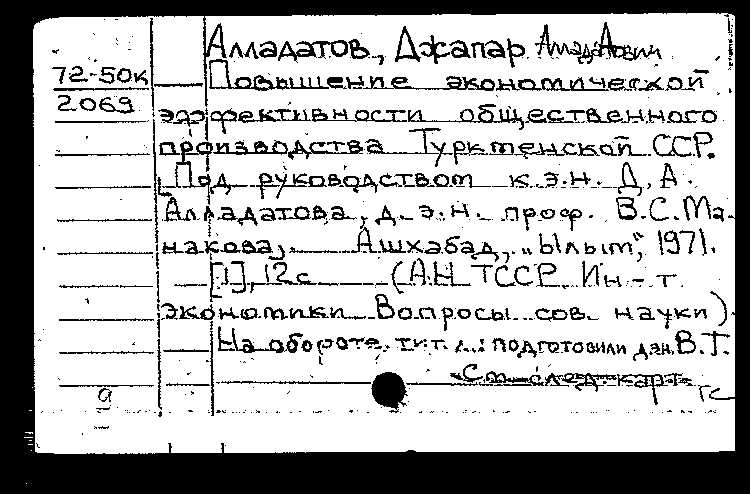 Алладатов, Джапар
72-50к Повышение экономической
2069 эффективности общественного
производства Туркменской ССР.
[Под руководством к.э.н. Д. А.
Алладатова, д. э. н. проф. В.С.Ма-
накова,. Ашхабад, "Ылым", 1971.
[1], 12с (АН ТССР Ин-т
экономики Вопросы сов. науки)
На обороте тит л.: подготовили В.Т.
См след. карт
а